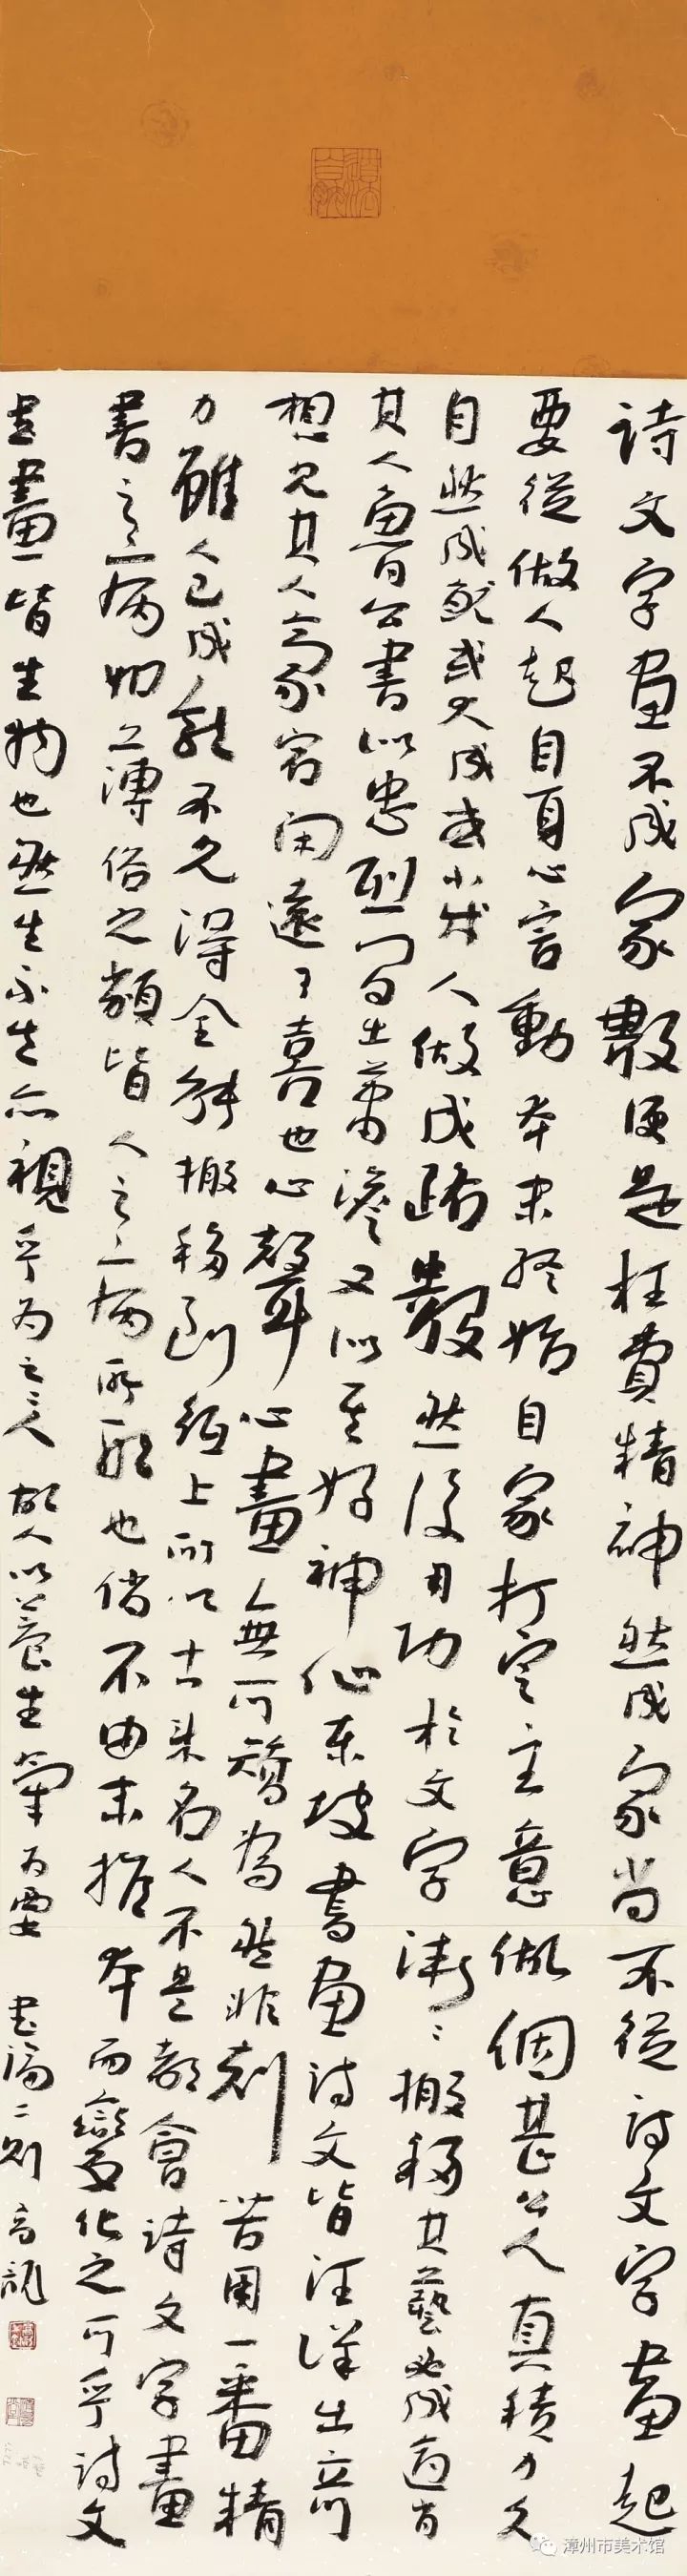 詩文字畫不成家數便是枉費精神然成家尚不從詩文字畫起
要從做人起自身心言動本末終始自家打定主意做個甚么人真積力久
自然成就或大成或小成人做成路數然後用功於文字漸〻搬移其藝必成適肖
其人魯公書以忠烈閣出蕭澹又以至好神仙東坡書畫詩文皆汪洋出奇
想見其人家宕閑遠可喜也心聲心畫無可矯為然非刻苦用一番精
力雖人已成就不免得全能搬移到紙上所以古來名人不是都會詩文字畫
書之病如之薄俗之類皆人之病所形也倘不由末推本而變化之可乎詩文
書畫皆生物也然生不生亦視乎為之之人故人以養生氣為要 書論二則
漳州市美术馆